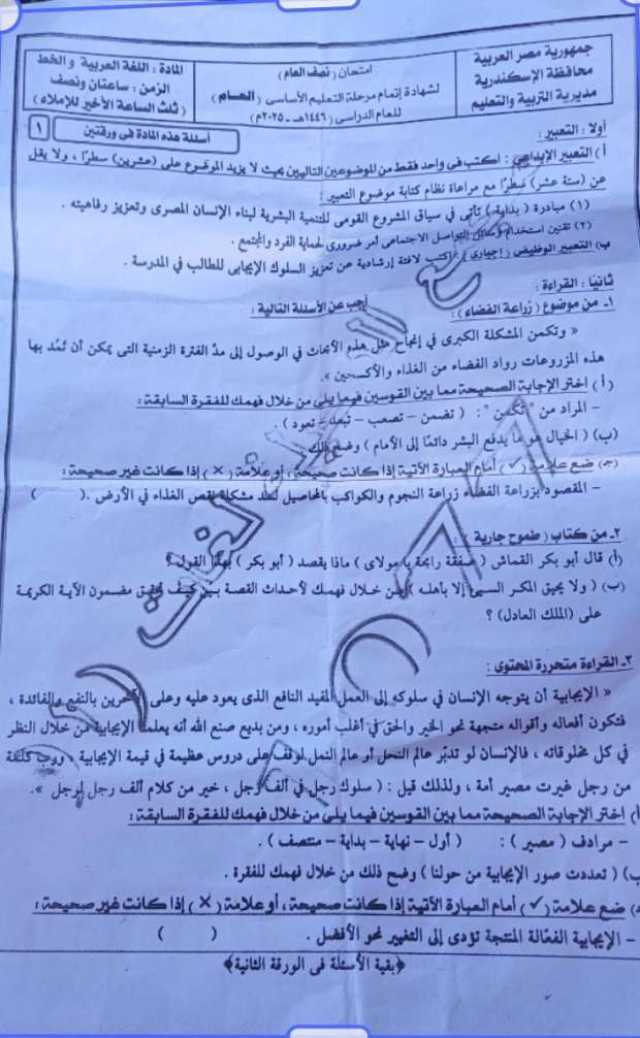 جمهورية مصر العربية
محافظة الإسكندرية
مديرية التربية والتعليم
امتحان (نصف العام)
لشهادة إتمام مرحلة التعليم الأساسى (العــام)
للعام الدراسى (١٤٤٦هـ - ٢٠٢٥م)
المادة : اللغة العربية والخط
الزمن : ساعتان ونصف
(ثلث الساعة الأخير للإملاء)
أسئلة هذه المادة فى ورقتين
١
أولا : التعبير :
أ) التعبير الإبداعي : اكتب فى واحد فقط من الموضوعين التاليين بحيث لا يزيد الموضوع على (عشرين) سطرًا ، ولا يقل
عن (ستة عشر) سطرًا مع مراعاة نظام كتابة موضوع التعبير :
(١) مبادرة (بداية) تأتى في سياق المشروع القومى للتنمية البشرية لبناء الإنسان المصرى وتعزيز رفاهيته .
(٢) تقنين استخدام وسائل التواصل الاجتماعى أمر ضرورى لحماية الفرد والمجتمع .
ب) التعبير الوظيفى (إجبارى) : اكتب لافتة إرشادية عن تعزيز السلوك الإيجابى للطالب في المدرسة .
ثانيًا : القراءة :
أجب عن الأسئلة التالية :
١ـ من موضوع (زراعة الفضاء) :
« وتكمن المشكلة الكبرى في إنجاح مثل هذه الأبحاث في الوصول إلى مدّ الفترة الزمنية التى يمكن أن تُمد بها
هذه المزروعات رواد الفضاء من الغذاء والأكسجين ».
(أ) اختر الإجابة الصحيحة مما بين القوسين فيما يلى من خلال فهمك للفقرة السابقة :
- المراد من "تكمن" : ( تضمن – تصعب – تبعد – تعود ) .
(ب) (الخيال هو ما يدفع البشر دائمًا إلى الأمام) وضح ذلك
(جـ) ضع علامة (✓) أمام العبارة الآتية إذا كانت صحيحة ، أو علامة (×) إذا كانت غير صحيحة :
- المقصود بزراعة الفضاء زراعة النجوم والكواكب بالمحاصيل لسد مشكلة نقص الغذاء في الأرض .( )
٢ـ من كتاب (طموح جارية) :
(أ) قال أبو بكر القماش (صفقة رابحة يا مولاى) ماذا يقصد (أبو بكر) بهذا القول ؟
(ب) (ولا يحيق المكر السيئ إلا بأهله) من خلال فهمك لأحداث القصة بين كيف تحقق مضمون الآية الكريمة
على (الملك العادل) ؟
٣ـ القراءة متحررة المحتوى :
« الإيجابية أن يتوجه الإنسان في سلوكه إلى العمل المفيد النافع الذى يعود عليه وعلى الآخرين بالنفع والفائدة ،
فتكون أفعاله وأقواله متجهة نحو الخير والحق في أغلب أموره ، ومن بديع صنع الله أنه يعلمنا الإيجابية من خلال النظر
في كل مخلوقاته ، فالإنسان لو تدبّر عالم النحل أو عالم النمل لوقف على دروس عظيمة في قيمة الإيجابية ، ورب كلمة
من رجل غيرت مصير أمة ، ولذلك قيل : (سلوك رجل في ألف رجل ، خير من كلام ألف رجل لرجل) ».
أ) اختر الإجابة الصحيحة مما بين القوسين فيما يلى من خلال فهمك للفقرة السابقة :
- مرادف (مصير) : ( أول – نهاية – بداية – منتصف ) .
ب) (تعددت صور الإيجابية من حولنا) وضح ذلك من خلال فهمك للفقرة .
جـ) ضع علامة (✓) أمام العبارة الآتية إذا كانت صحيحة ، أو علامة (×) إذا كانت غير صحيحة :
- الإيجابية الفعّالة المنتجة تؤدى إلى التغيير نحو الأفضل . ( )
﴿بقية الأسئلة فى الورقة الثانية﴾